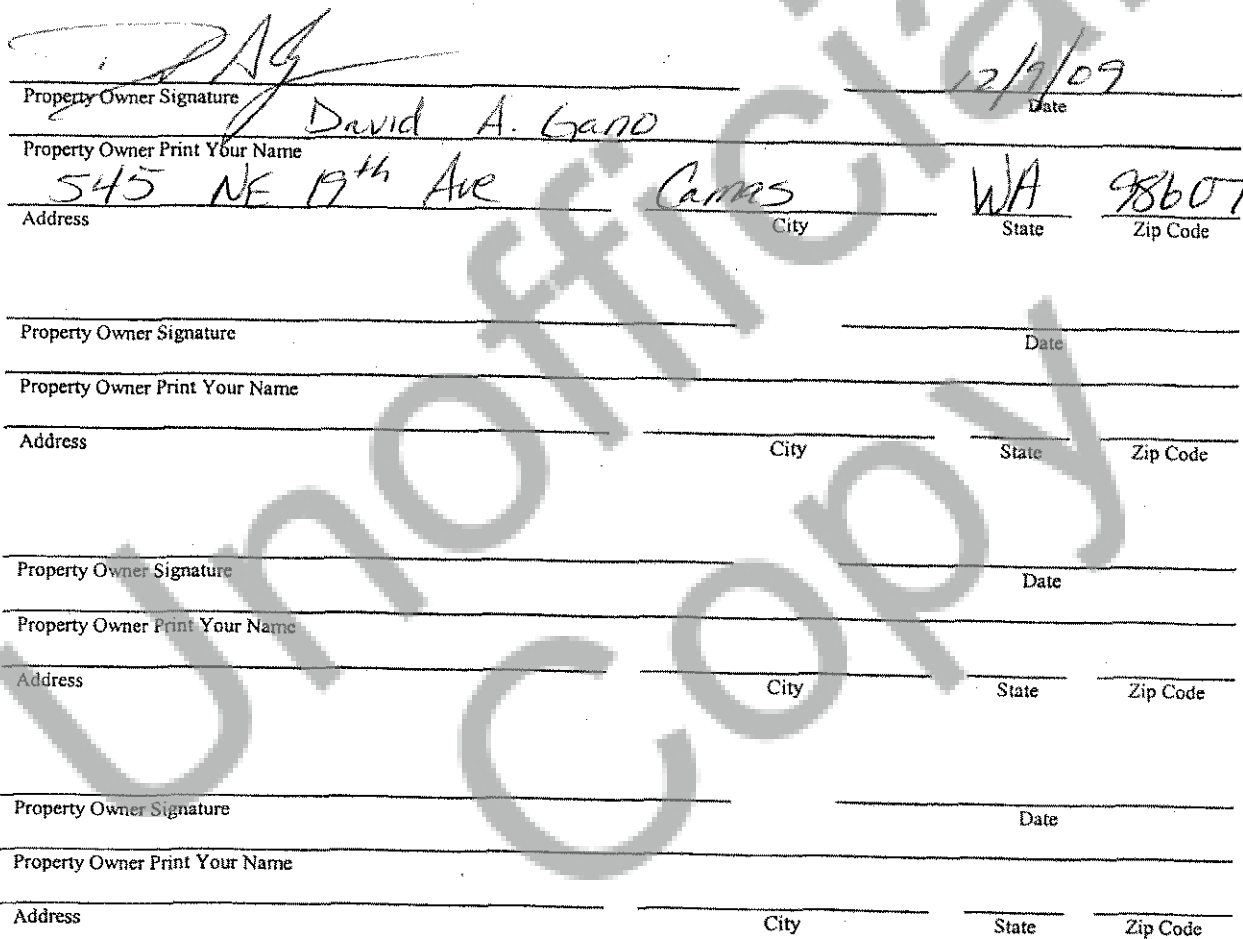 12/9/09
Property Owner Signature Date
David A. Gano
Property Owner Print Your Name
545 NE 19th Ave Camas WA 98607
Address City State Zip Code
Property Owner Signature Date
Property Owner Print Your Name
Address City State Zip Code
Property Owner Signature Date
Property Owner Print Your Name
Address City State Zip Code
Property Owner Signature Date
Property Owner Print Your Name
Address City State Zip Code
Unofficial
Copy